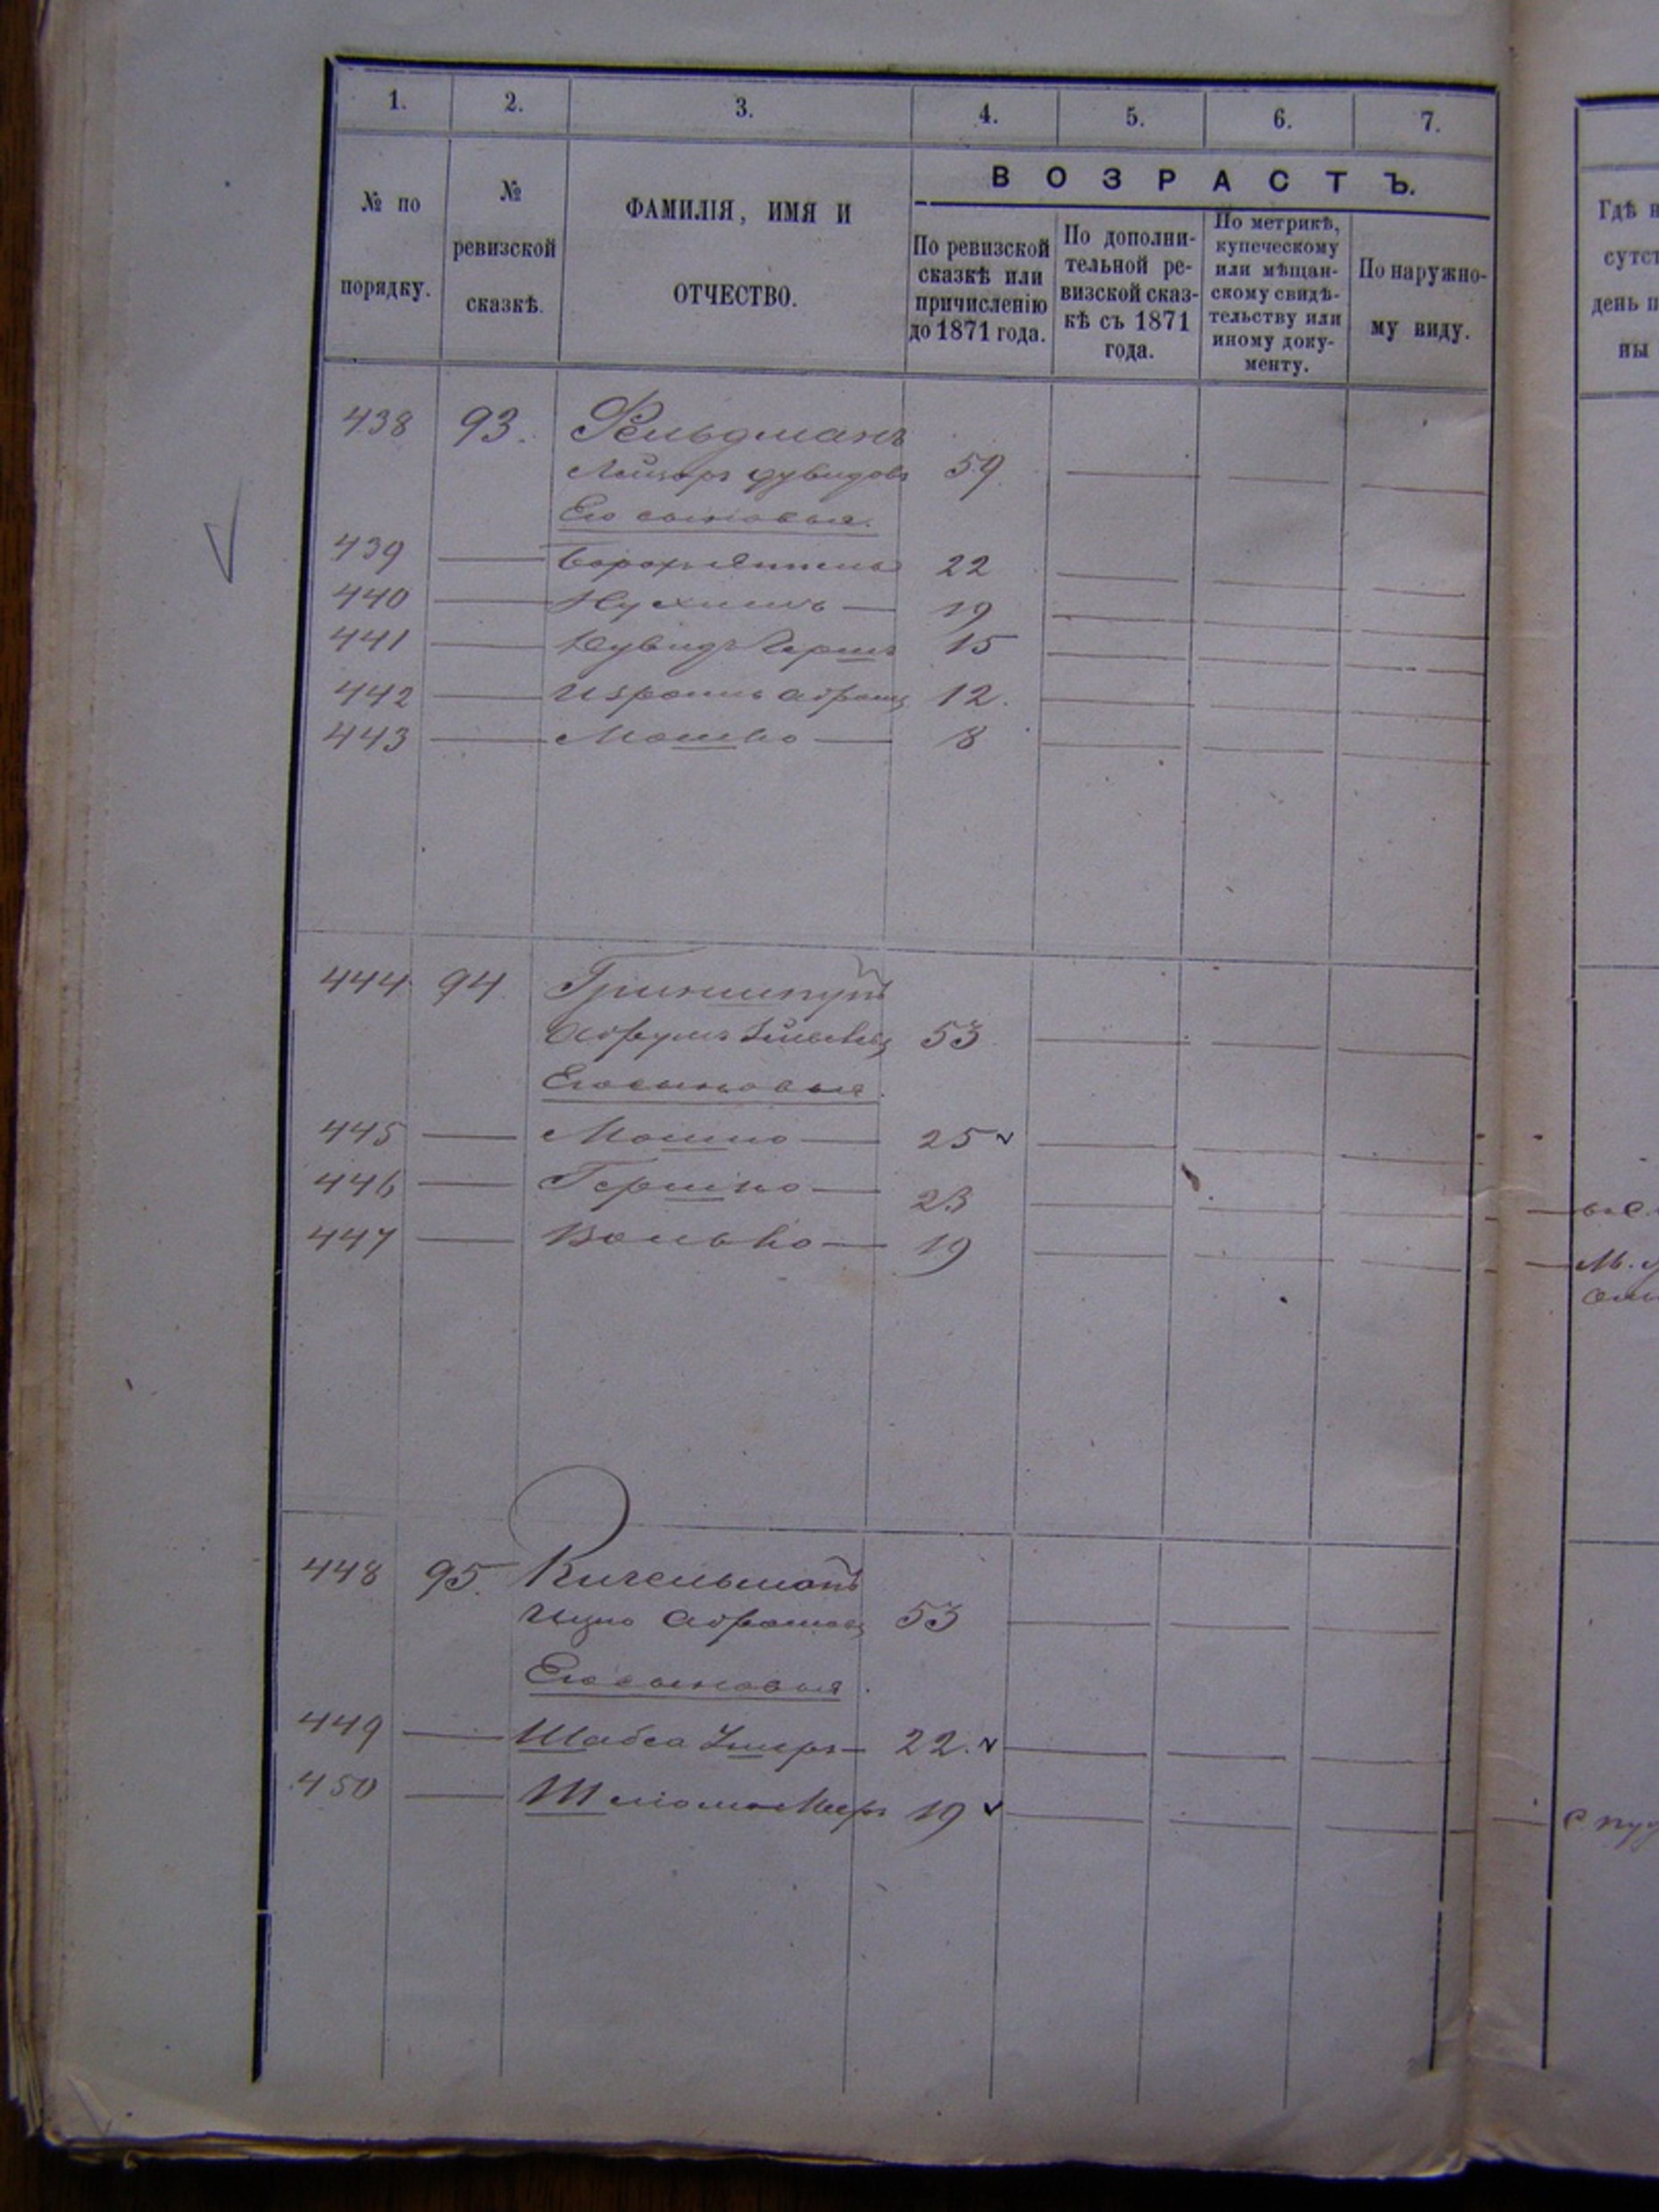 1. 2. 3. 4. 5. 6. 7.
№ по порядку.
№ ревизской сказкѣ.
ФАМИЛІЯ, ИМЯ И ОТЧЕСТВО.
ВОЗРАСТЪ.
По ревизской сказкѣ или причисленію до 1871 года.
По дополнительной ревизской сказкѣ съ 1871 года.
По метрикѣ, купеческому или мѣщанскому свидѣтельству или иному документу.
По наружному виду.
438 93. Фельдманъ
Лейзеръ Дувидовъ 59
Его сыновья.
439 22
440 Нухимъ 19
441 Дувидъ Гершъ 15
442 Израиль Абрамъ 12.
443 Мошко 8
444 94 Гриншпунъ
Абрумъ 53
Его сыновья.
445 Мошко 25
446 Гершко 23
447 Волько 19
448 95. Кигельманъ
Ицко Абрамовъ 53
Его сыновья.
449 Шабса 22.
450 Шліома Мееръ 19
Гдѣ